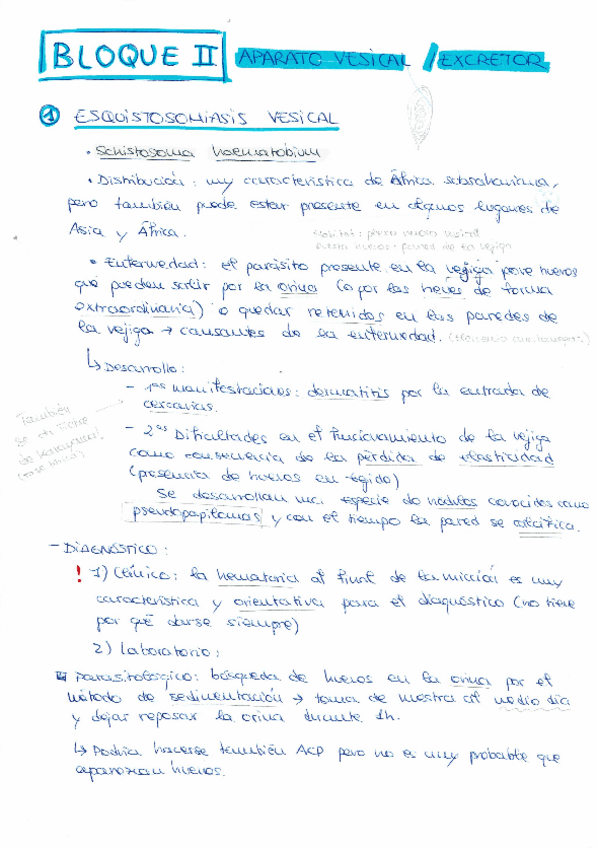 BLOQUE II APARATO VESICAL / EXCRETOR
① ESQUISTOSOMIASIS VESICAL
• Schistosoma haematobium
• Distribución: muy característica de África subsahariana,
pero también puede estar presente en algunos lugares de
Asia y África.
Habitat: plexo venoso vesical
huevos - pared de la vejiga
• Enfermedad: el parásito presente en la vejiga pone huevos
que pueden salir por la orina (o por las heces de forma
extraordinaria) o quedar retenidos en las paredes de
la vejiga → causantes de la enfermedad.
↳ Desarrollo:
- 1as manifestaciones: dermatitis por la entrada de
cercarias.
También
se da fiebre
de Katayama
- 2as Dificultades en el funcionamiento de la vejiga
como consecuencia de la pérdida de elasticidad
(presencia de huevos en tejido)
Se desarrollan una especie de nódulos conocidos como
pseudopapilomas y con el tiempo la pared se calcifica.
- DIAGNÓSTICO:
! 1) Clínico: la hematuria al final de la micción es muy
característica y orientativa para el diagnóstico (no tiene
por qué darse siempre)
2) Laboratorio:
Parasitológico: búsqueda de huevos en la orina por el
método de sedimentación → toma de mestra al medio día
y dejar reposar la orina durante 1h.
↳ Podría hacerse también ACP pero no es muy probable que
aparezcan huevos.